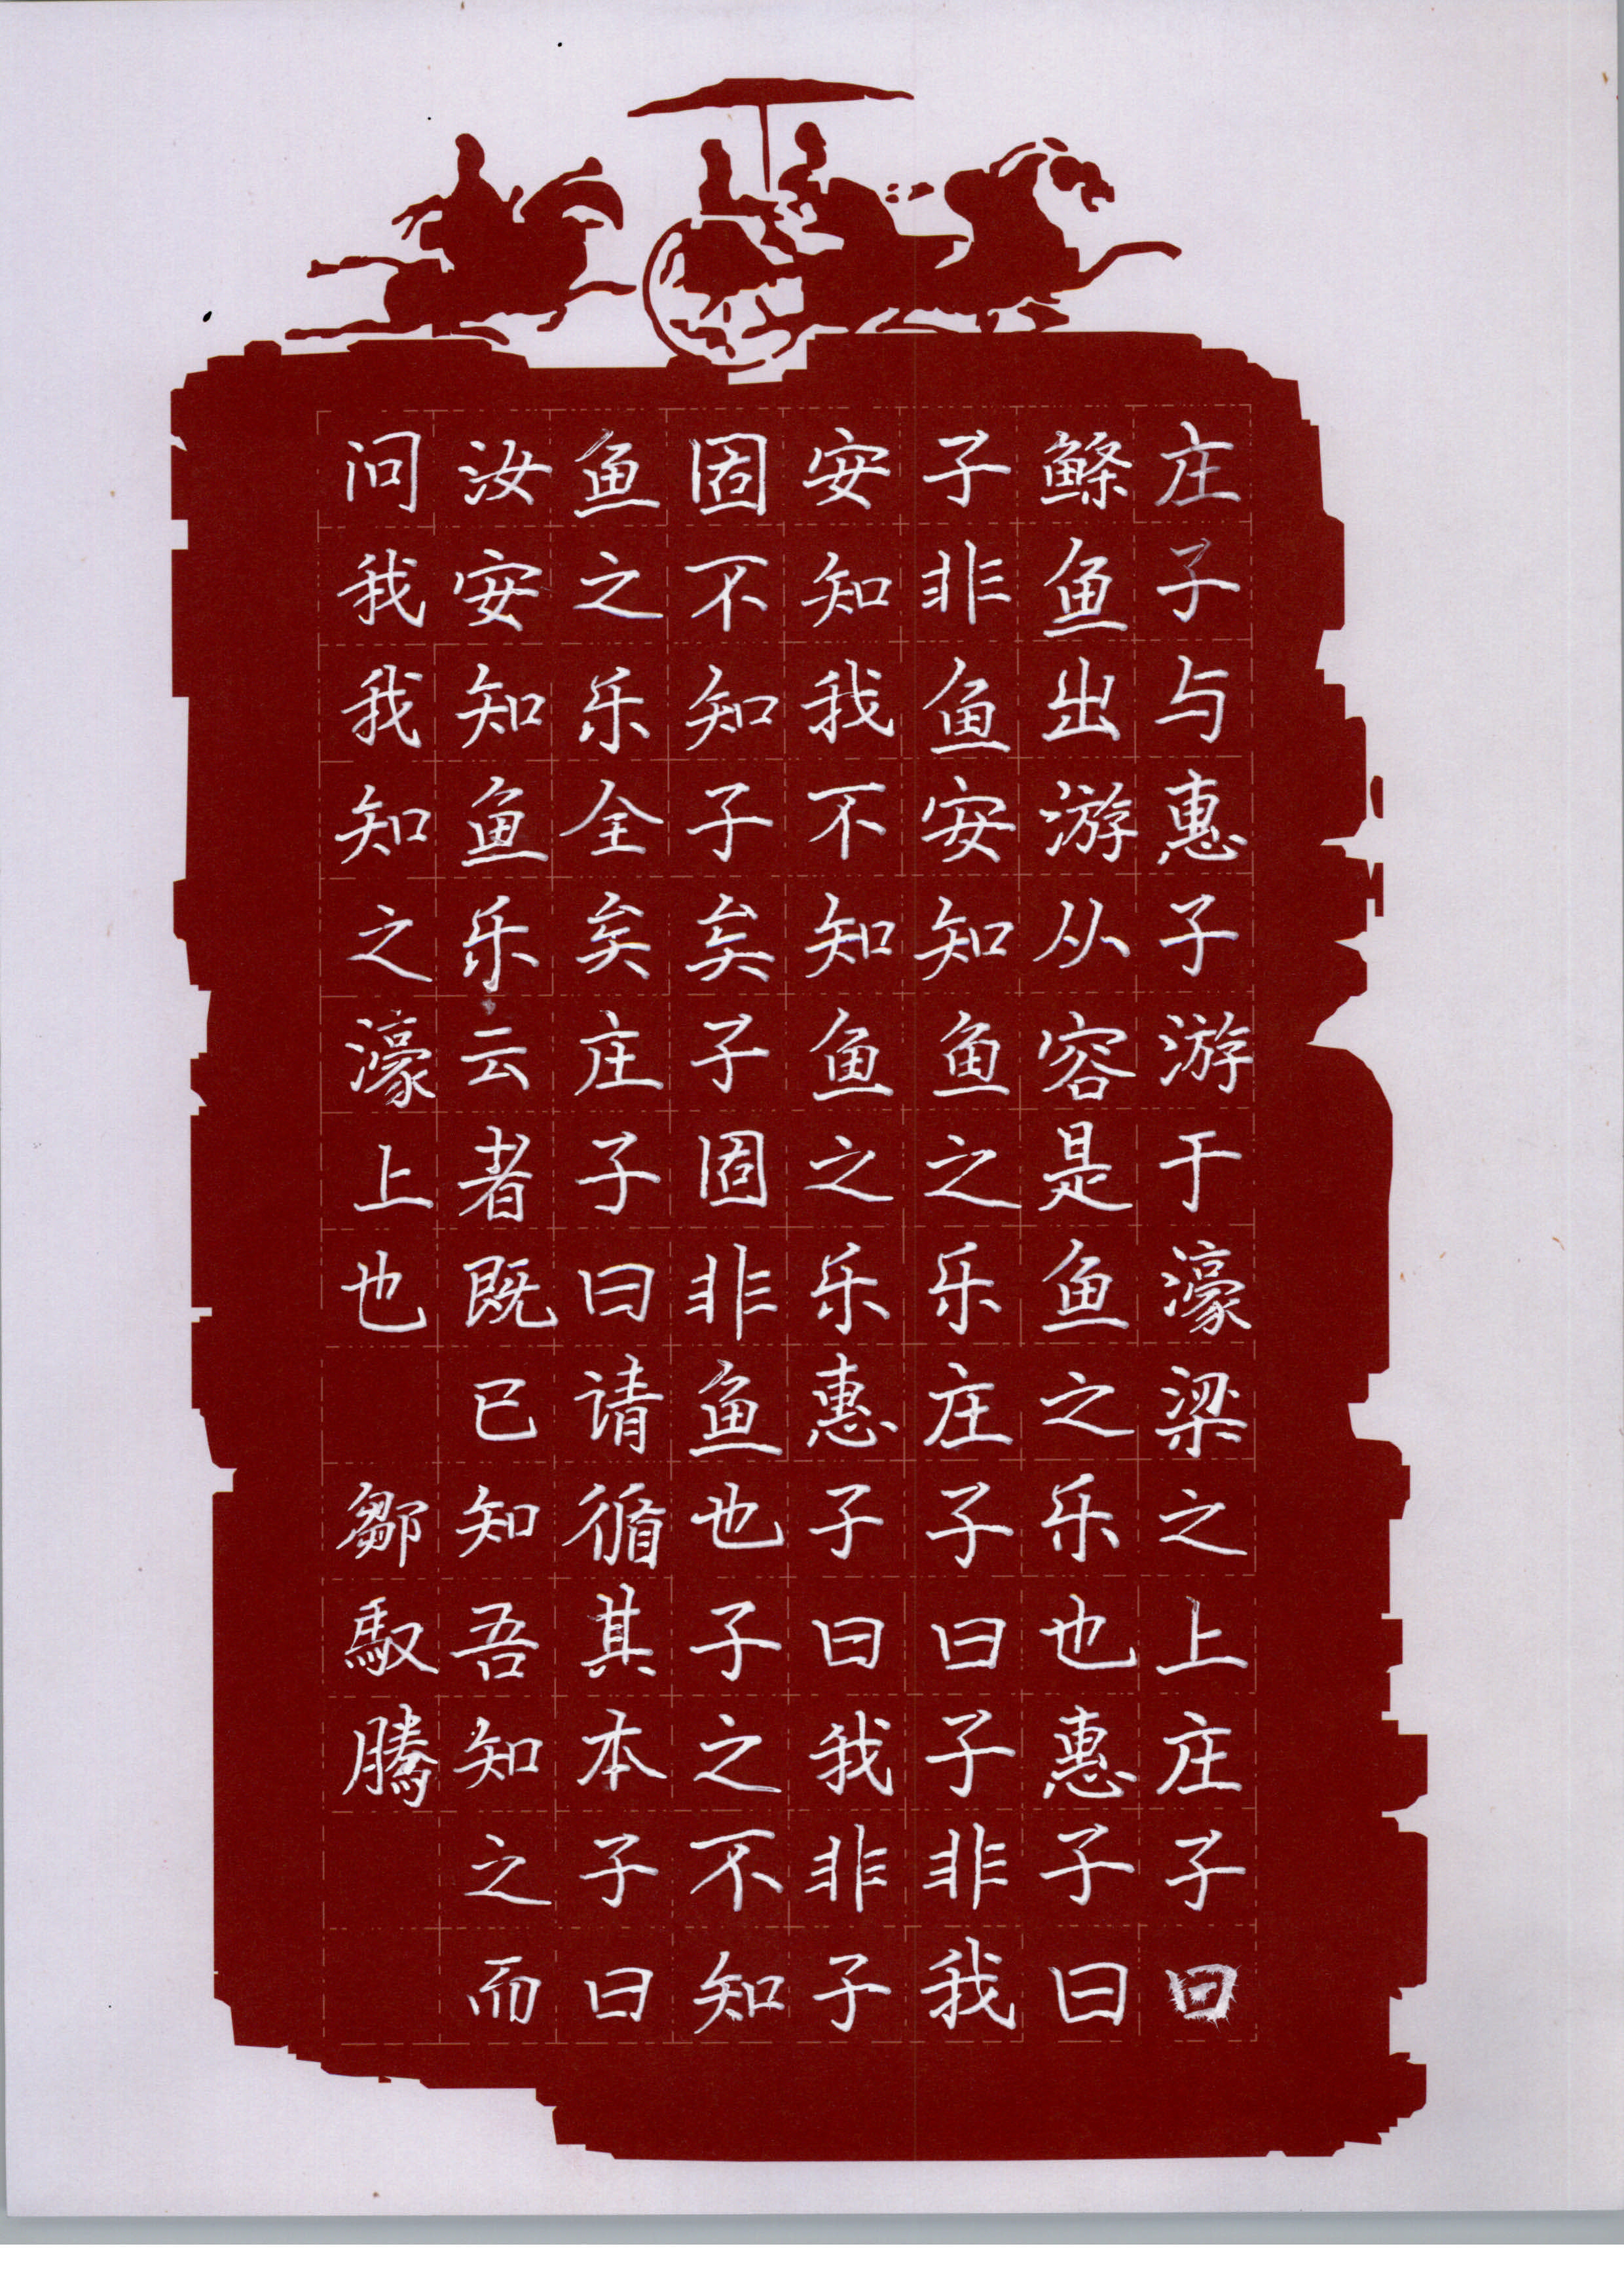 庄子与惠子游于濠梁之上庄子曰
鲦鱼出游从容是鱼之乐也惠子曰
子非鱼安知鱼之乐庄子曰子非我
安知我不知鱼之乐惠子曰我非子
固不知子矣子固非鱼也子之不知
鱼之乐全矣庄子曰请循其本子曰
汝安知鱼乐云者既已知吾知之而
问我我知之濠上也 鄒馭騰